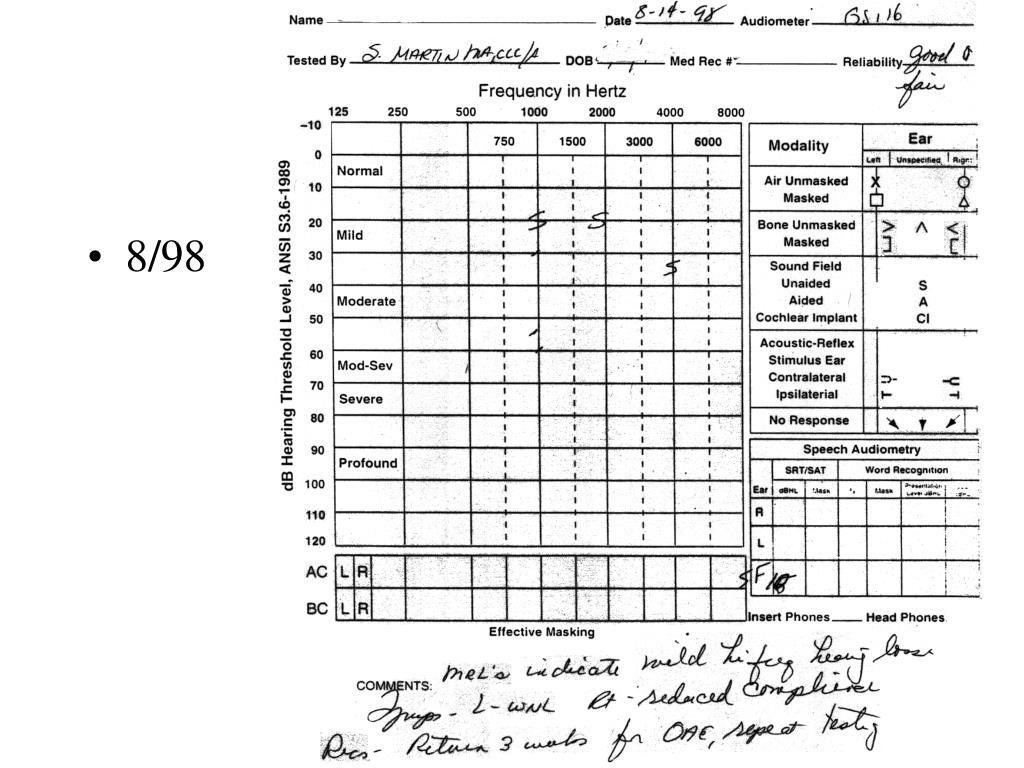 Name Date 8-14-98 Audiometer GSI 16
Tested By S. MARTIN MA,CCC/A DOB Med Rec # Reliability good
fair
Frequency in Hertz
125 250 500 1000 2000 4000 8000
750 1500 3000 6000
dB Hearing Threshold Level, ANSI S3.6-1989
-10
0
Normal
10
20
Mild
30
40
Moderate
50
60
Mod-Sev
70
Severe
80
90
Profound
100
110
120
S S
S
• 8/98
AC L R
BC L R
Effective Masking
Modality Ear
Left Unspecified Right
Air Unmasked X O
Masked □ △
Bone Unmasked > ^ <
Masked ] [
Sound Field
Unaided S
Aided A
Cochlear Implant CI
Acoustic-Reflex
Stimulus Ear
Contralateral
Ipsilaterial
No Response
Speech Audiometry
SRT/SAT Word Recognition
Ear dBHL Mask Mask Presentation Level dBHL
R
L
SF
Insert Phones Head Phones
COMMENTS: MRL's indicate mild hi freq hearing loss
Tymps - L-WNL Rt - reduced compliance
Recs - Return 3 weeks for OAE, repeat testing